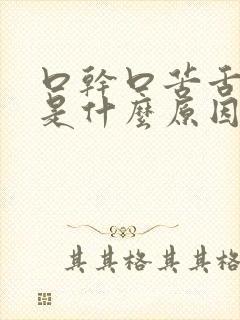 口幹口苦舌
是什麼原因
其其格其其格